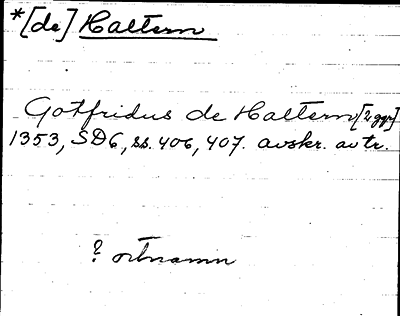 *[de] Haltern
Gotfridus de Haltern [2 ggr]
1353, SD6, ss. 406, 407. avskr. av tr.
? ortnamn